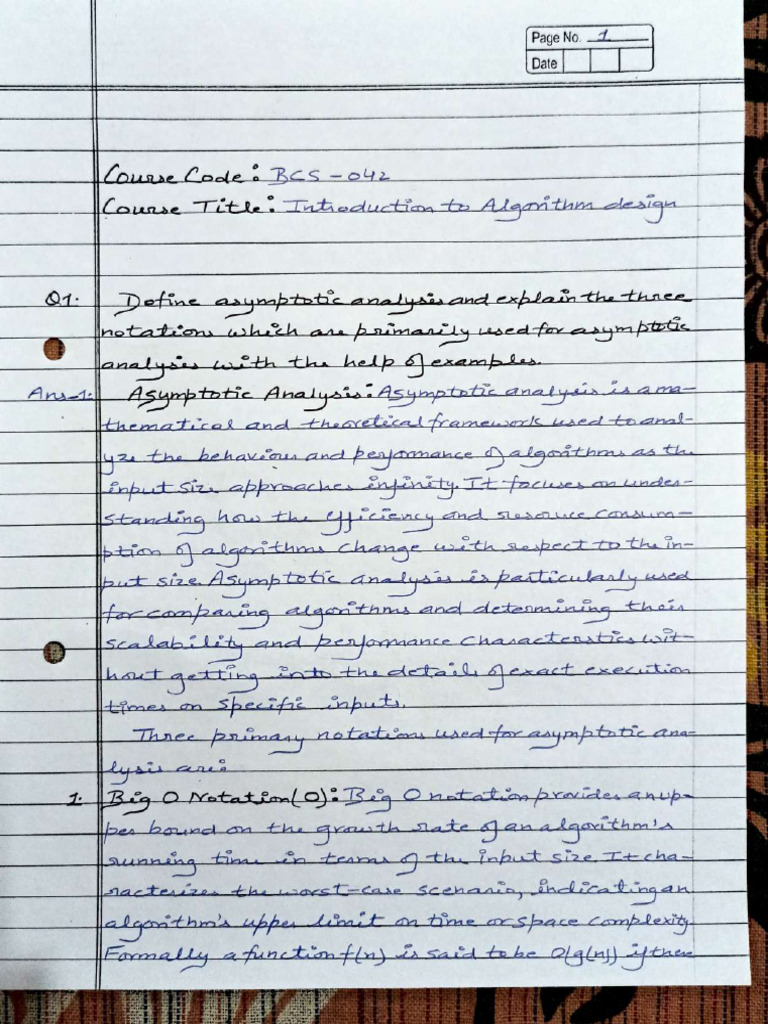 Page No. 1
Date
Course Code: BCS-042
Course Title: Introduction to Algorithm design
Q1. Define asymptotic analysis and explain the three
notations which are primarily used for asymptotic
analysis with the help of examples.
Ans-1. Asymptotic Analysis: Asymptotic analysis is a ma-
thematical and theoretical framework used to anal-
yze the behaviour and performance of algorithms as the
input size approaches infinity. It focuses on under-
standing how the efficiency and resource consum-
ption of algorithms change with respect to the in-
put size. Asymptotic analysis is particularly used
for comparing algorithms and determining their
scalability and performance characterstics wit-
hout getting into the details of exact execution
times on specific inputs.
Three primary notations used for asymptotic ana-
lysis are:
1. Big O Notation(O): Big O notation provides an up-
per bound on the growth rate of an algorithm's
running time in terms of the input size. It cha-
racterizes the worst-case scenario, indicating an
algorithm's upper limit on time or space complexity.
Formally a function f(n) is said to be O(g(n)) if there